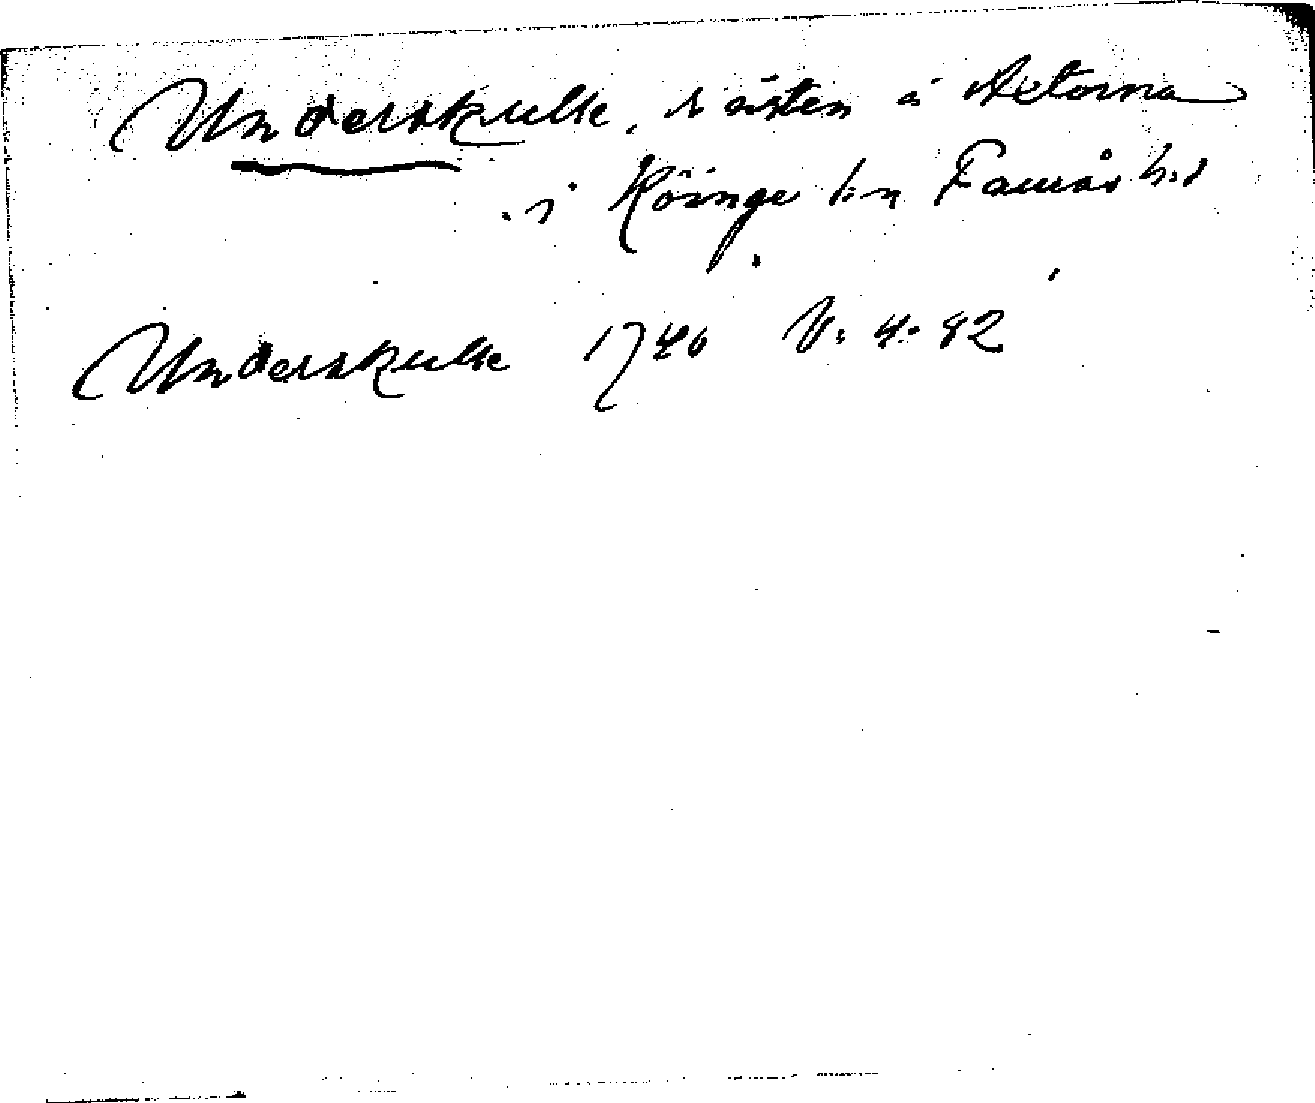 Underskulle, i östen å Aetorna
i Köinge s:n Faurås h:d
Underskulle 1746 V: 4: 82